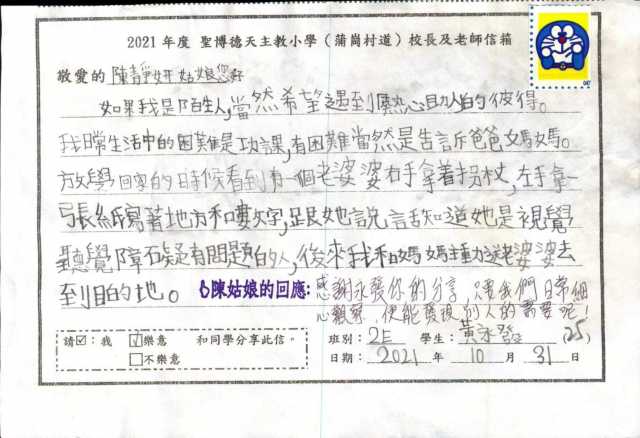 2021 年度 聖博德天主教小學(蒲崗村道)校長及老師信箱
敬愛的 陳靜妍姑娘您好
如果我是陌生人,當然希望遇到熱心助人的彼得。
我日常生活中的困難是功課,有困難當然是告訴爸爸媽媽。
放學回家的時候看到有一個老婆婆右手拿着拐杖,左手拿一
張紙寫著地方和數字,跟她說話知道她是視覺
聽覺障礙有問題的人,後來我和媽媽主動送老婆婆去
到目的地。
陳姑娘的回應:
感謝永發你的分享,只要我們日常細
心觀察,便能發現別人的需要呢!
請☑:我 ☑樂意 和同學分享此信。
□不樂意
班別:2E 學生:黃永發 (25)
日期:2021 年 10 月 31 日